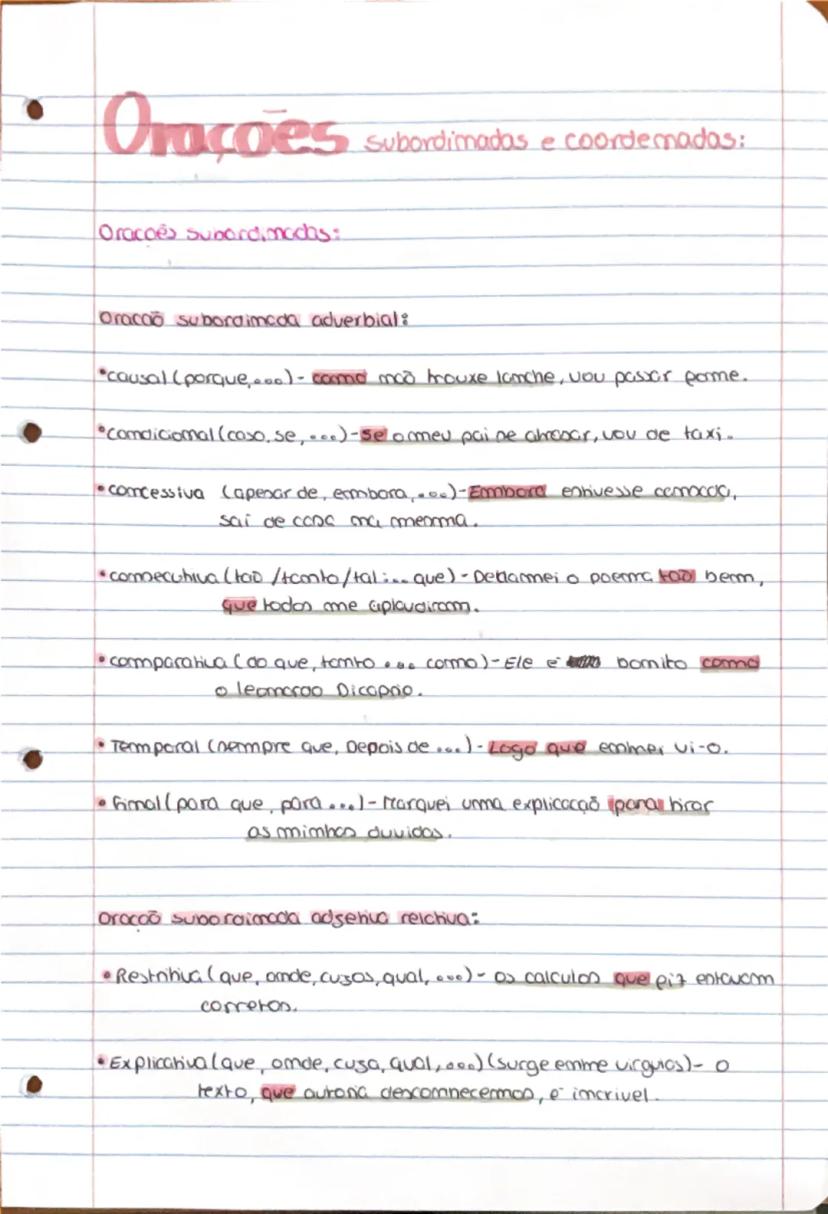 Orações subordinadas e coordenadas:
Oracoēs subordinadas:
Oracaõ subordinada adverbial:
•causal (porque,...) - como naõ trouxe lanche, vou passar fome.
•condicional (caso, se, ...) - se o meu pai se atrasar, vou de taxi.
•concessiva (apesar de, embora, ...) - Embora estivesse cansada,
sai de casa na mesma.
•consecutiva (taõ /tanto/tal ... que) - Declamei o poema taõ bem,
que todos me aplaudiram.
•comparativa (do que, tanto ... como) - Ele é bonito como
o leonardo Dicaprio.
•Temporal (sempre que, Depois de ...) - Logo que entrei vi-o.
•final (para que, para ...) - Marquei uma explicaçaõ para tirar
as minhas duvidas.
oraçaõ subordinada adjetiva relativa:
•Restritiva (que, onde, cujos, qual, ...) - os calculos que fiz estavam
corretos.
•Explicativa (que, onde, cuja, qual, ...) (surge entre virgulas) - o
texto, que autoria desconhecemos, é incrivel.